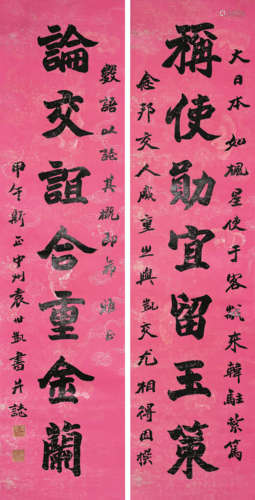 大日本如楓星使于客歲來韓駐紮篤
稱使勛宜留玉策
念邦交人咸重之與凱交尤相得因撰
數語以誌其概即希雅正
論交誼合重金蘭
甲午新正中州袁世凱書并誌